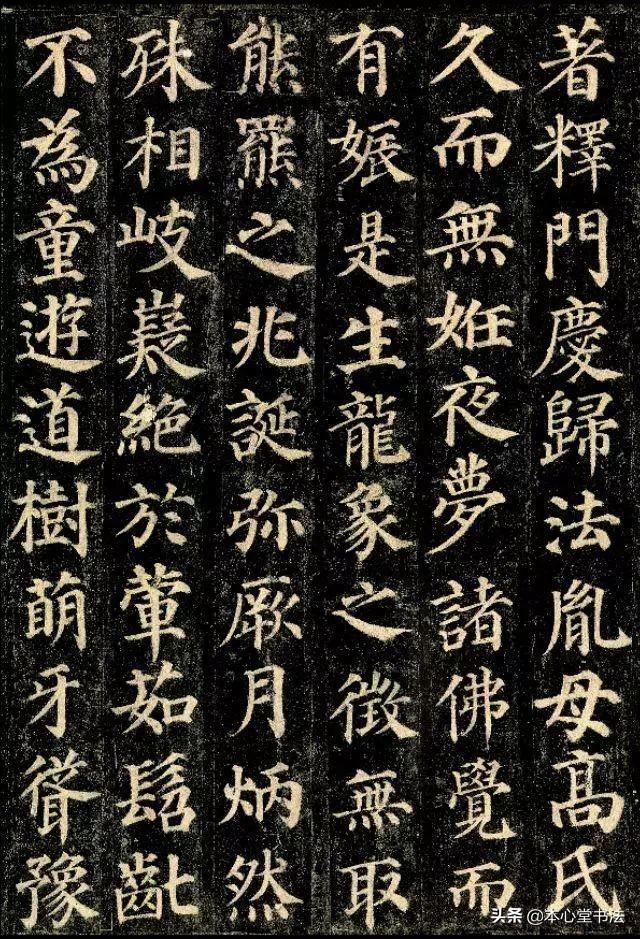 著釋門慶歸法胤母髙氏
久而無姙夜夢諸佛覺而
有娠是生龍象之徵無取
熊羆之兆誕弥厥月炳然
殊相岐嶷絶於葷茹髫齔
不為童遊道樹萌牙聳豫
头条 @本心堂书法